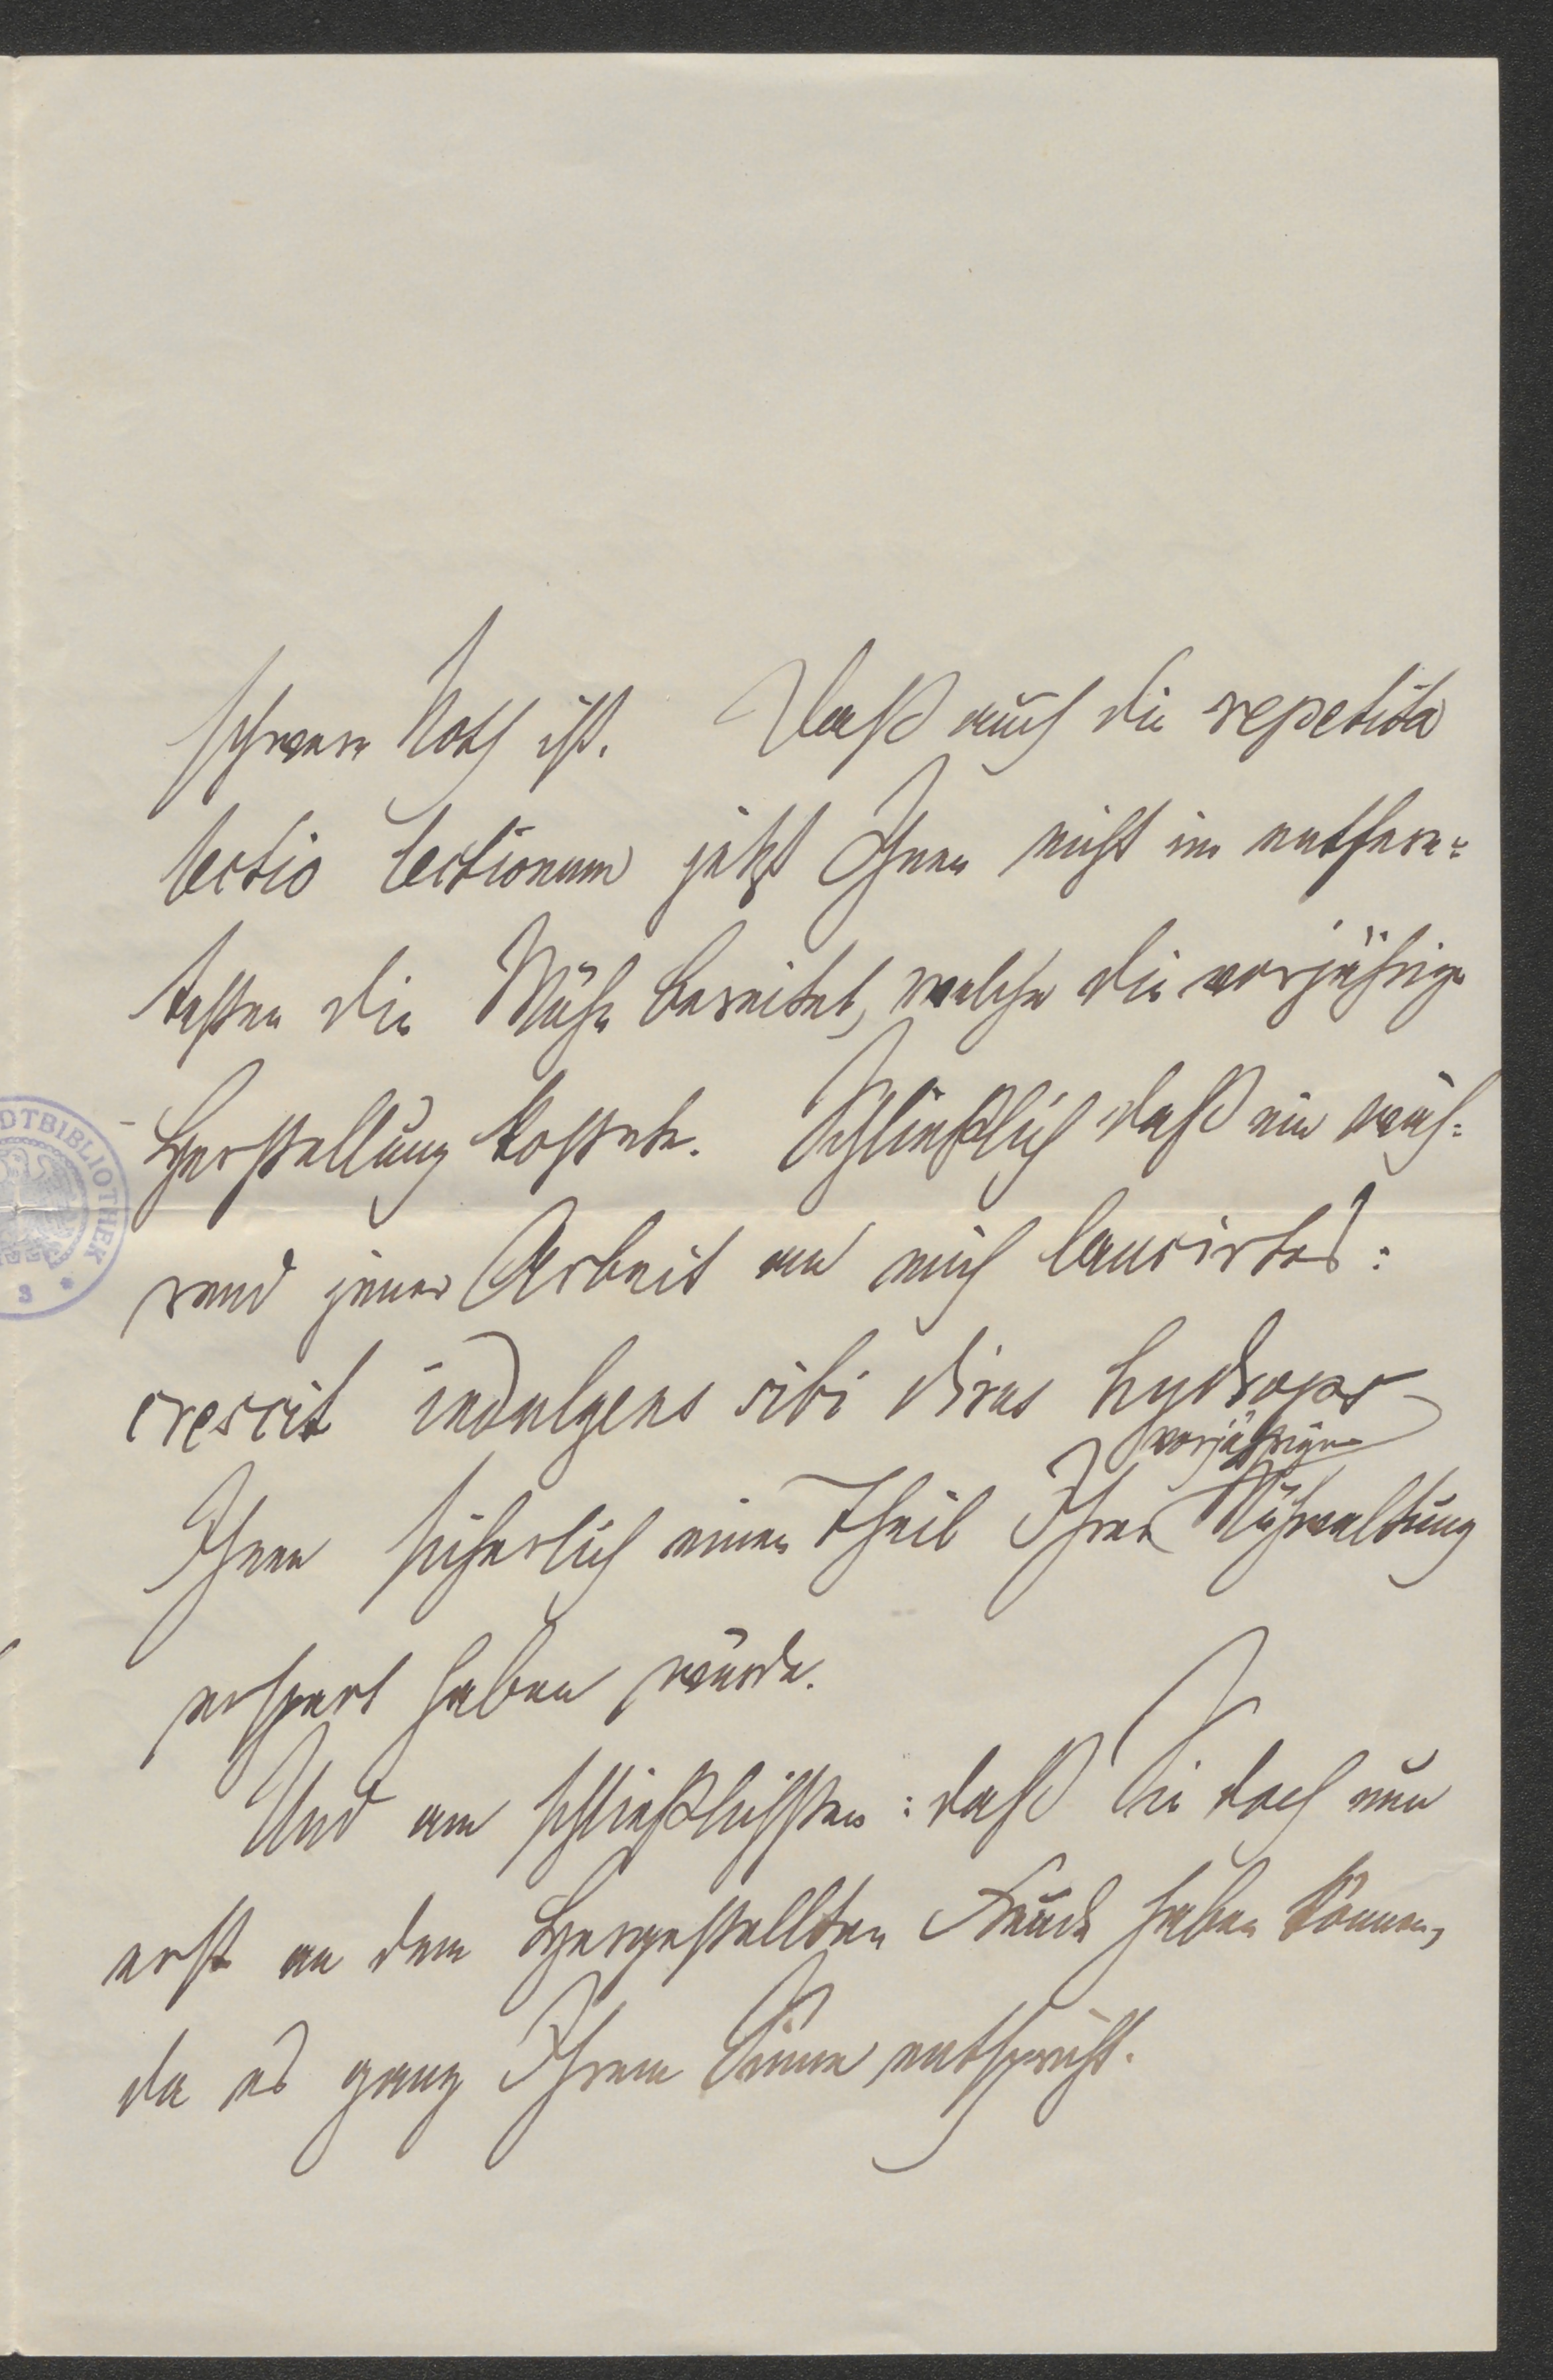 schwere Noth ist. Daß auch die repetita
lectio lectionum jetzt Ihnen nicht im entfern=
testen die Mühe bereitet, welche die vorjährige
Herstellung kostete. Schließlich daß ein wäh=
rend jener Arbeit an mich lancirtes:
crescit indulgens sibi dirus hydrops
vorjährigen
Ihnen sicherlich einen Theil Ihrer Mühwaltung
erspart haben würde.
Und am schließlichsten: daß Sie doch nun
erst an dem Hergestellten Freude haben können,
da es ganz Ihrem Sinne entspricht.
DTBIBLIOTHEK
3